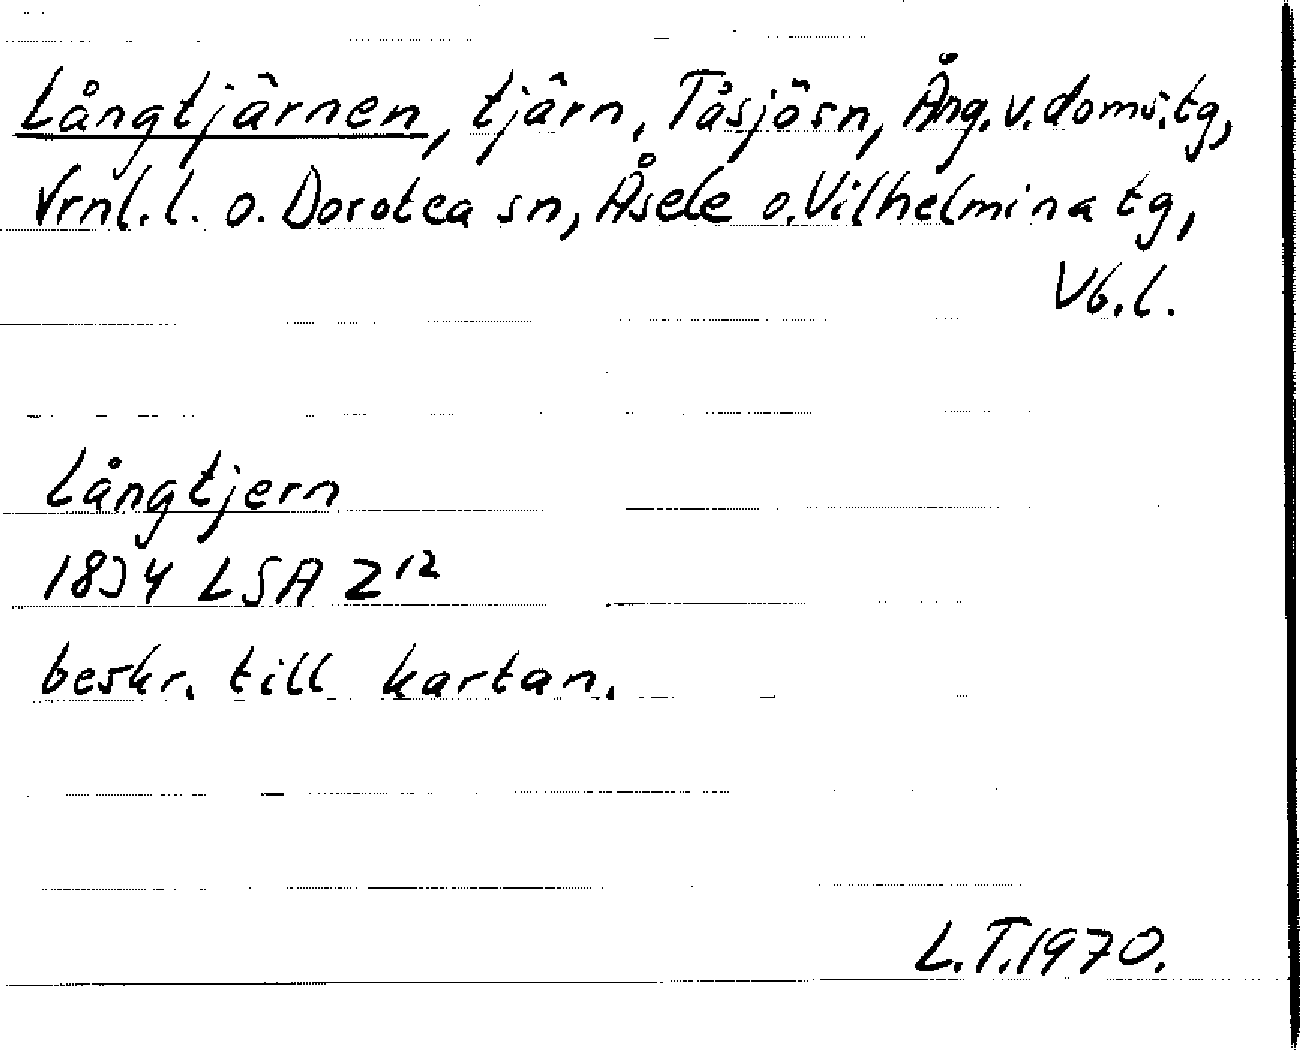 Långtjärnen, tjärn, Tåsjö sn, Ång. v. doms. tg,
Vrnl. l. o. Dorotea sn, Åsele o. Vilhelmina tg,
Vb. l.
Långtjern
1834 LSA Z¹²
beskr. till kartan.
L.T. 1970.